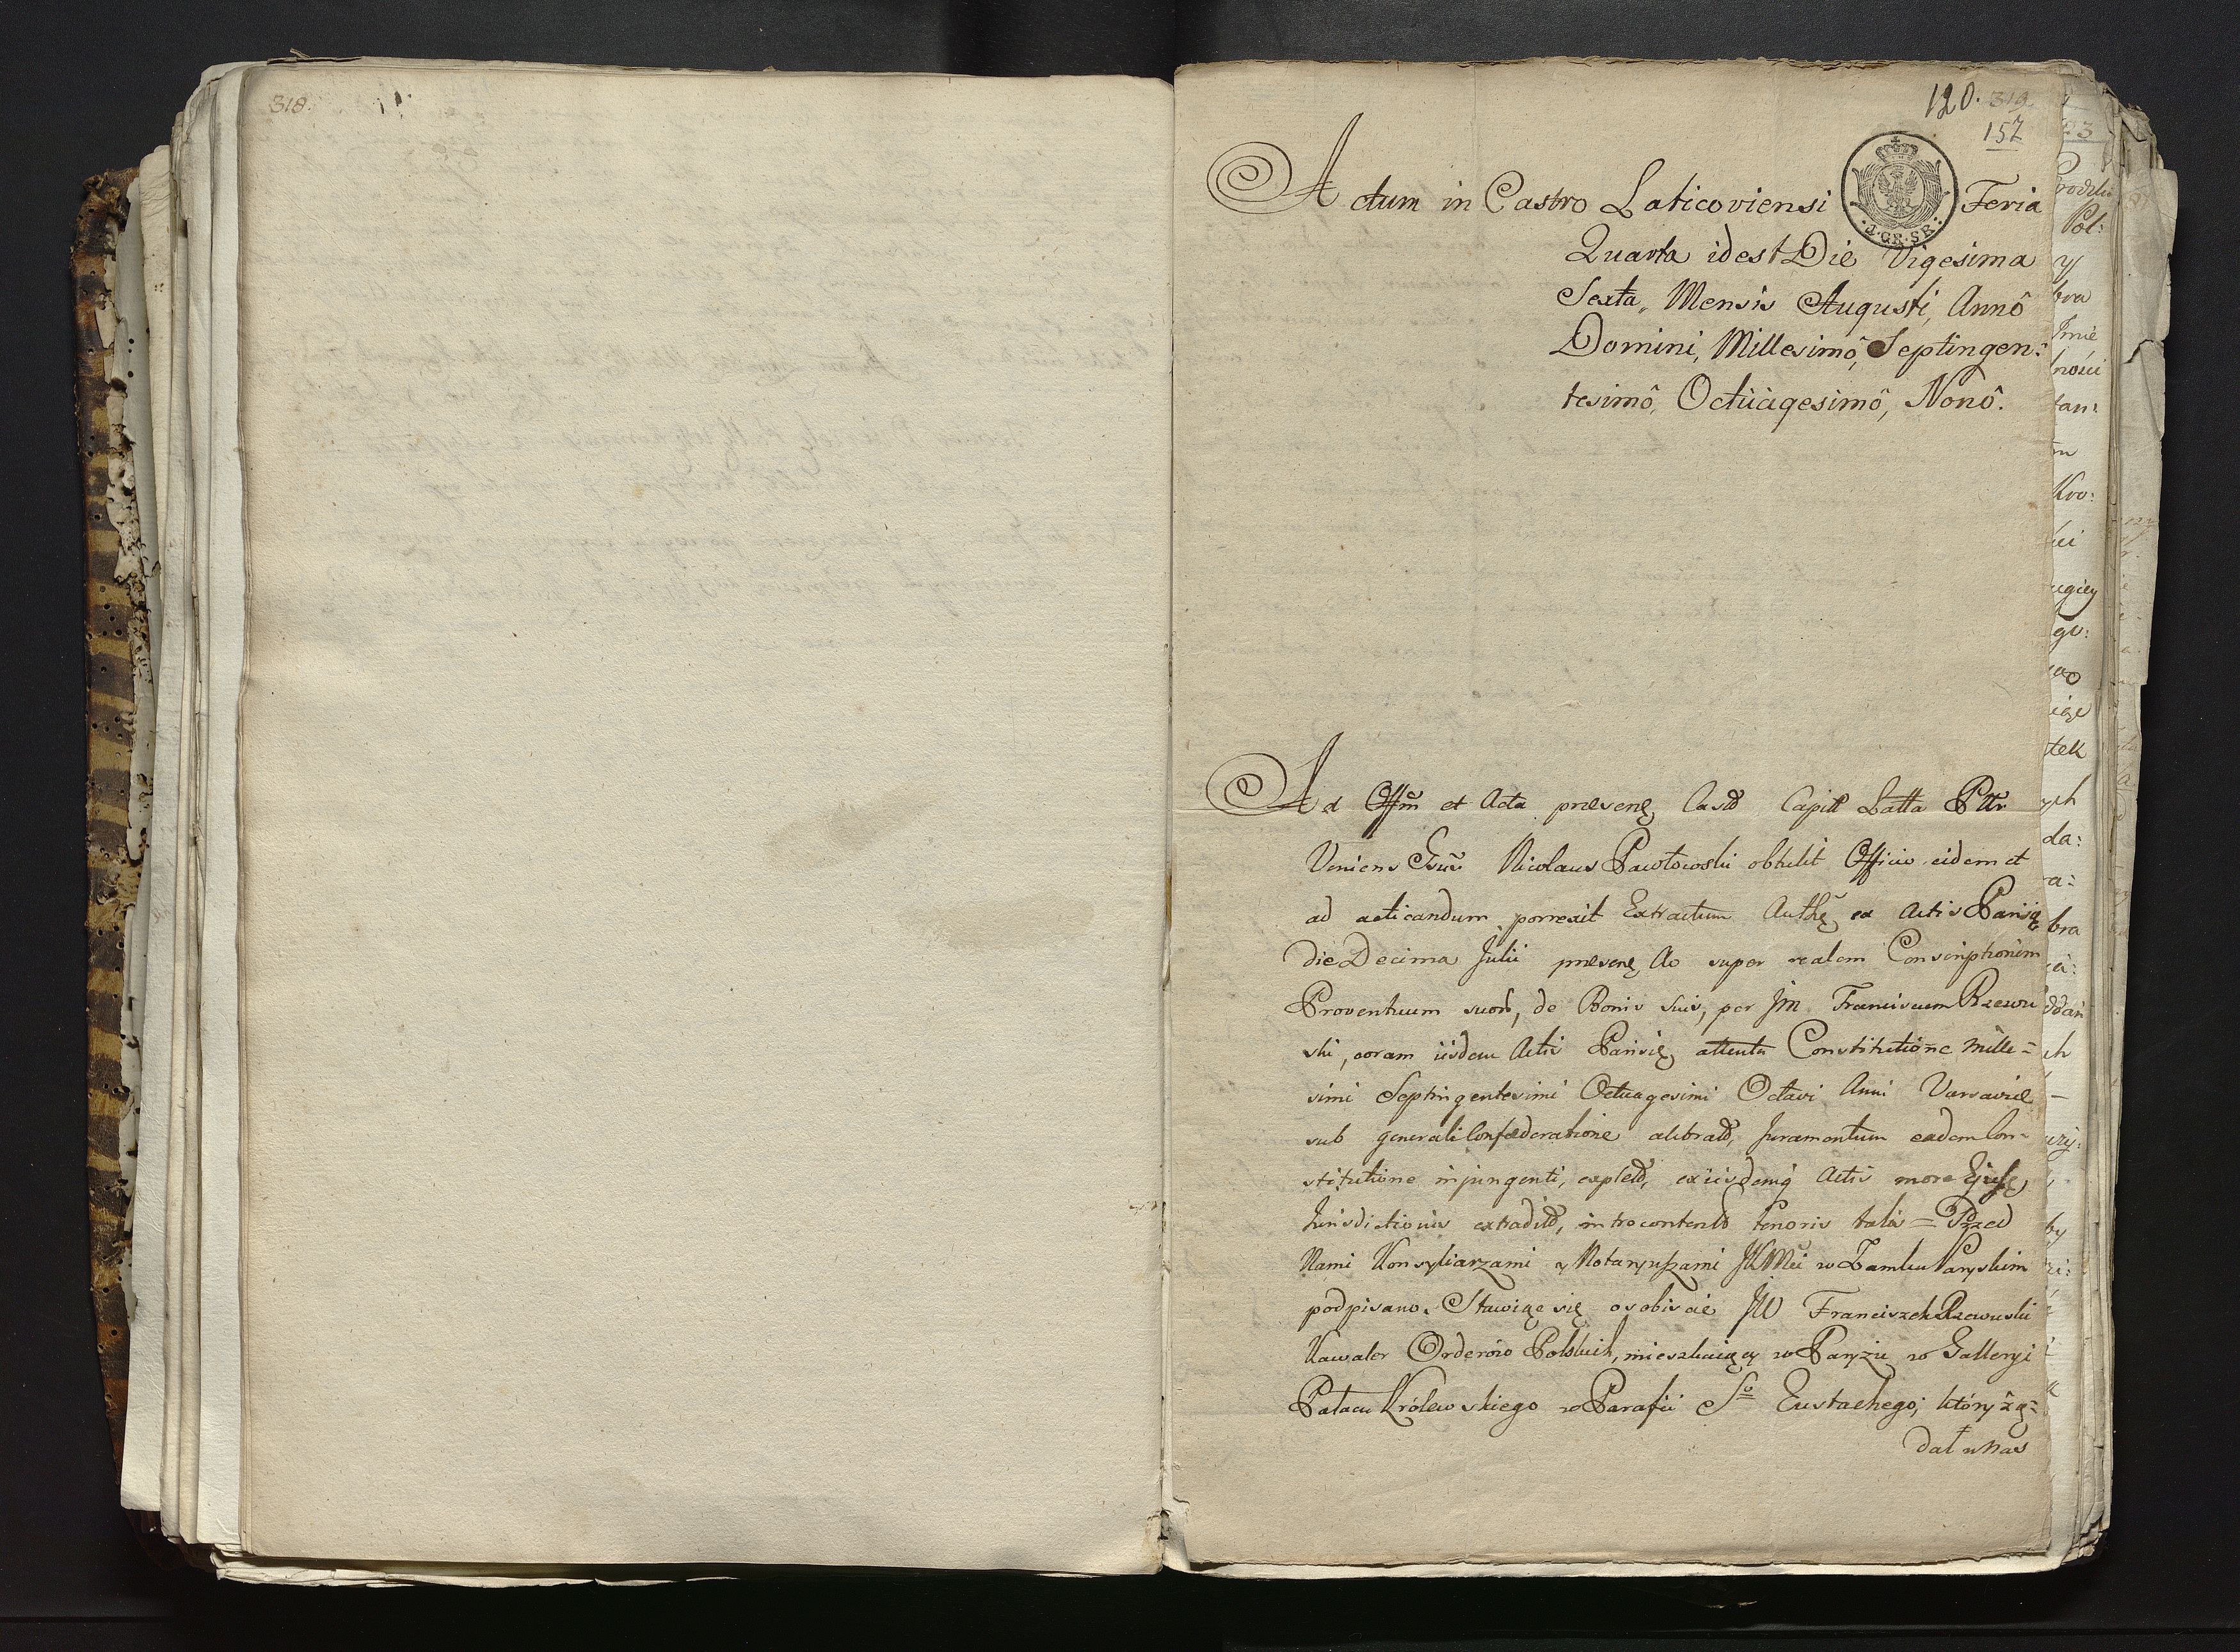 318.
120. 319
157
Actum in Castro Laticoviensi Feria
4.GR.SR.
Quarta idest Die Vigesima
Sexta, Mensis Augusti, Annô
Domini, Millesimô, Septingen:
tesimô, Octuagesimô, Nonô.
Ad Offm et Acta præsenę Castr Capitl Latta Pttr
Veniens Gnus Nicolaus Pawłowski obtulit Officio eidem et
ad acticandum porrexit Extractum Authę ex Actis Parisię
die Decima Julii præsenę Ao super realem Conscriptionem
Proventuum suor, de Bonis Suis, per Jm Franciscum Rzewu
ski, coram iisdem Actis Parisię, attenta Constitutione Mille=
simi Septingentesimi Octuagesimi Octavi Anni Varsaviæ
sub generali Confæderatione celebrat, Juramentum eadem Con=
stitutione injungenti, explet, ex iisdemq Actis more Ejusę
Jurisdictionis extradit, introcontent tenoris talis = Przed
Nami Konsyliarzami y Notaryuszami JKMci w Zamku Paryskim
podpisano. Stawiąc się osobiscie JW Franciszek Rzewuski
Kawaler Orderów Polskich, mieszkaiący w Paryżu w Galleryi
Pałacu Królewskiego w Parafii So Eustachego; który żą=
dał u Nas